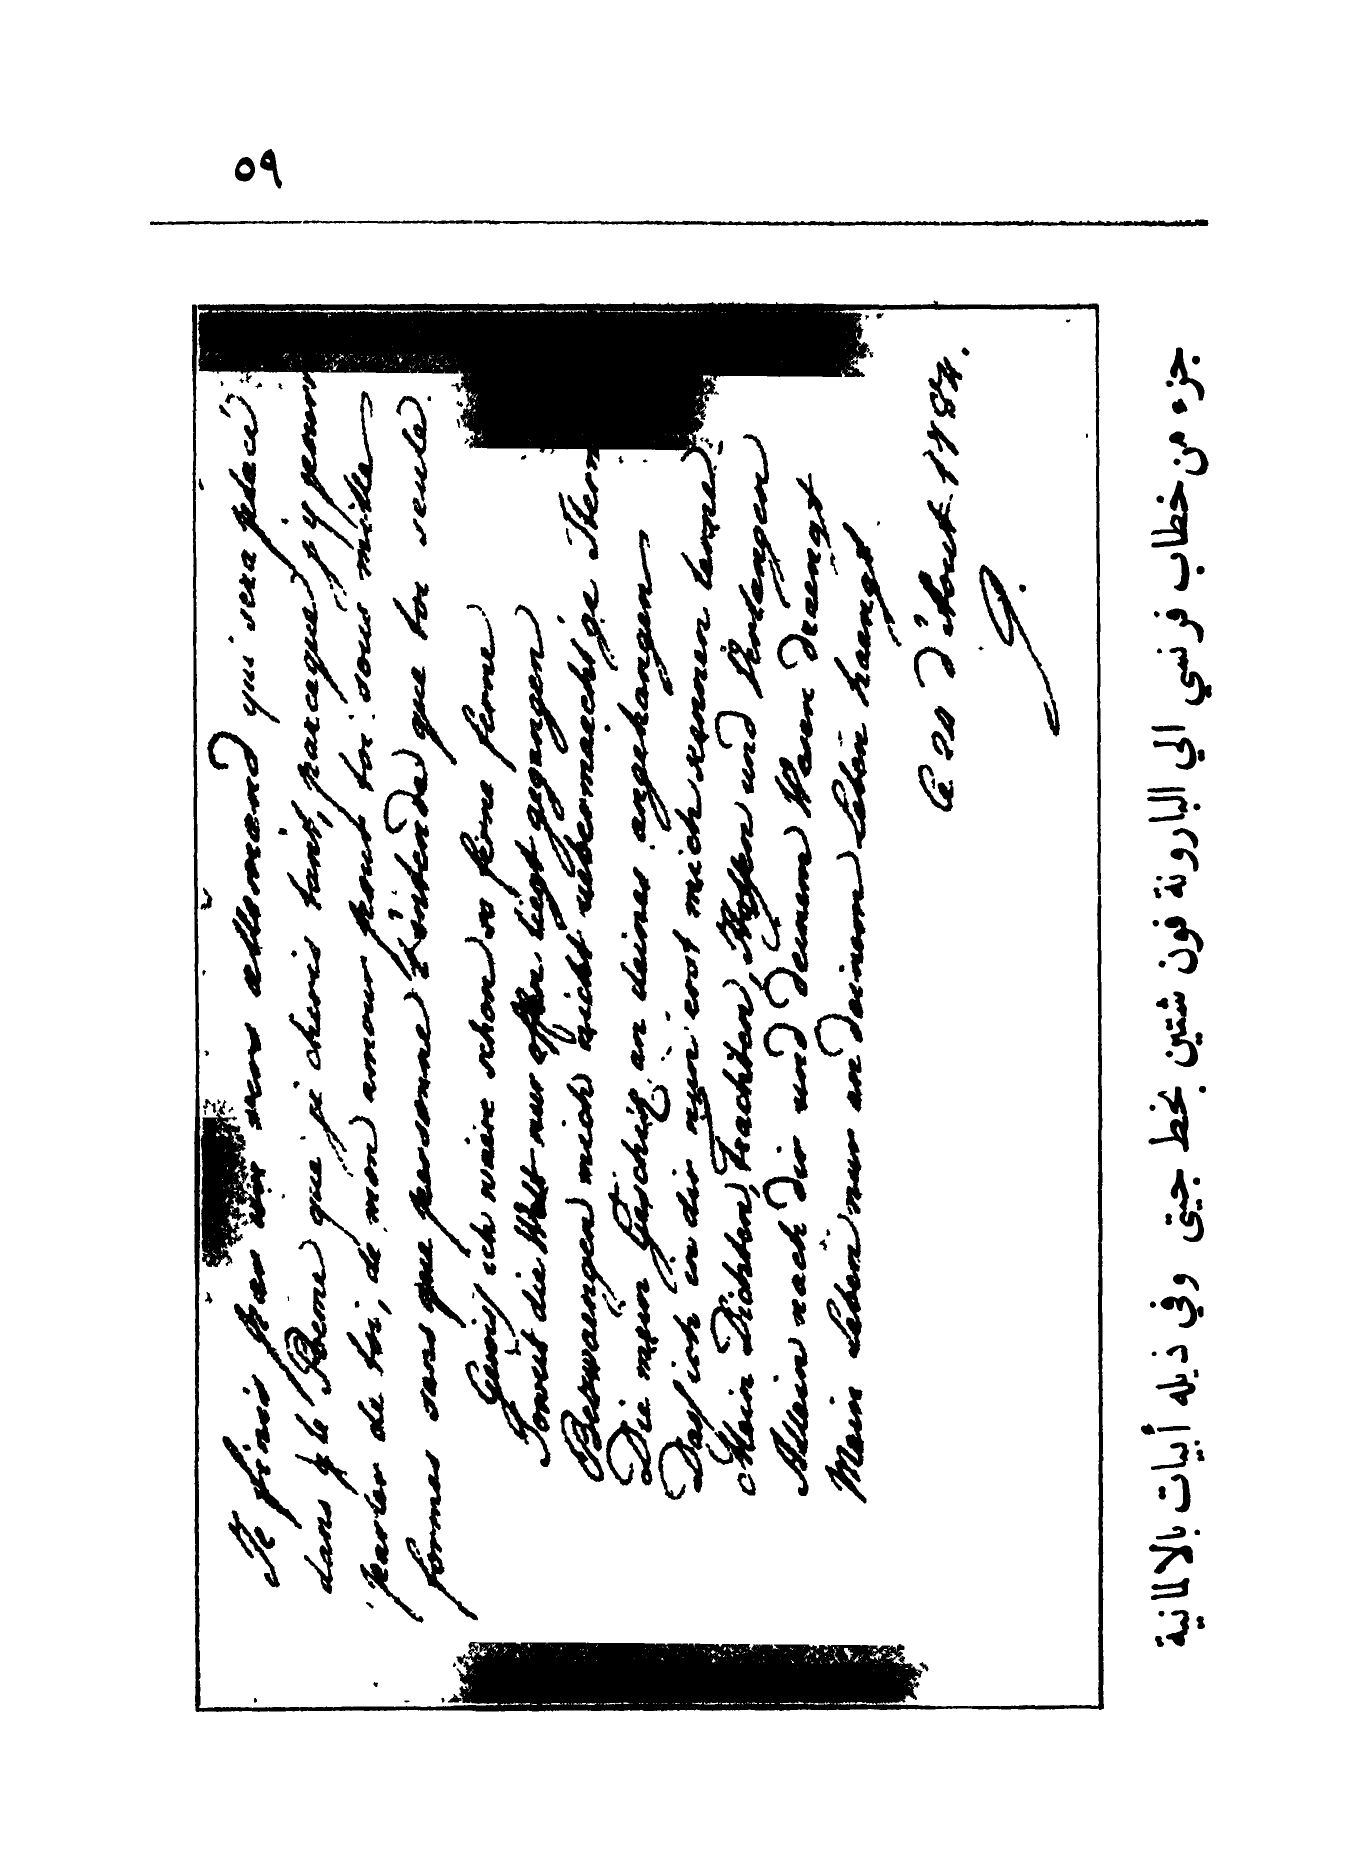 ٥٩
Je finis par un vers allemand qui sera placé
dans le Poeme que je cheris tant, parceque j'y pourrai
parler de toi, de mon amour pour toi sous mille
formes sans que personne l'entende que toi seule.
Gewiß ich wäre schon so ferne ferne
Soweit die Welt nur offen liegt gegangen
Bezwaengen mich nicht uebermaecht'ge Stern
Die mein Geschick an deines angehangen
Daß ich in dir nun erst mich kennen lerne
Mein Dichten, Trachten, Hoffen und Verlangen
Allein nach dir und deinem Wesen draengt
Mein Leben nur an deinem Leben haengt
le 20 d'Aout 1784.
G.
جزء من خطاب فرنسي الي البارونة فون شتين بخط جيتي وفي ذيله أبيات بالالمانية